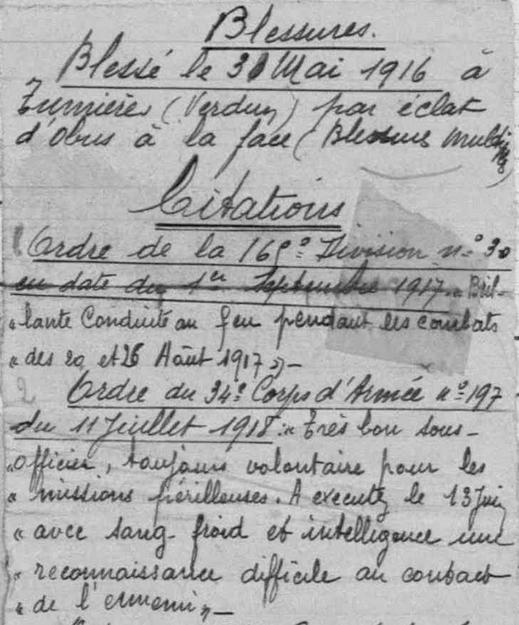 Blessures.
Blessé le 31 Mai 1916 à
Cumières (Verdun) par éclat
d'obus à la face (Blessures multiples)
Citations
1 Ordre de la 169e Division n° 30
en date du 1er Septembre 1917. « Bril-
« lante Conduite au feu pendant les combats
« des 20 et 26 Août 1917 » -
2 Ordre du 34e Corps d'Armée n° 197
du 11 Juillet 1918 : « Très bon sous-
« officier, toujours volontaire pour les
« missions périlleuses. A executé le 13 Juin
« avec sang-froid et intelligence une
« reconnaissance difficile au contact
« de l'ennemi » -